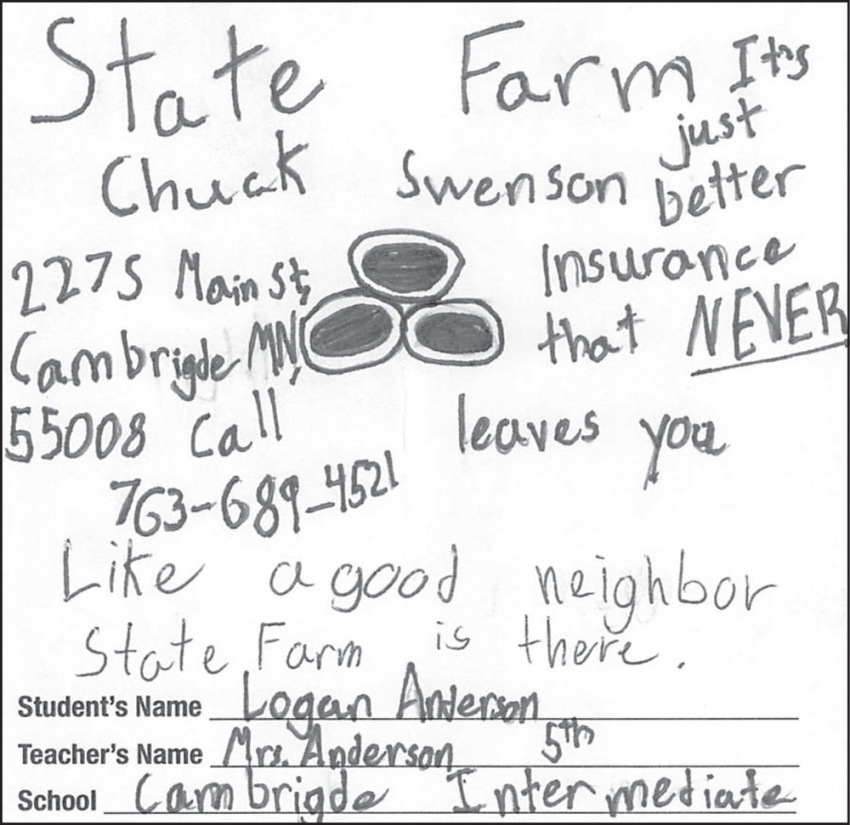 State Farm
Chuck Swenson
It's
just
better
Insurance
that NEVER
leaves you
2275 Main St,
Cambrigde MN,
55008 Call
763-689-4521
Like a good neighbor
State Farm is there.
Student's Name Logan Anderson
Teacher's Name Mrs. Anderson 5th
School Cambrigde Intermediate